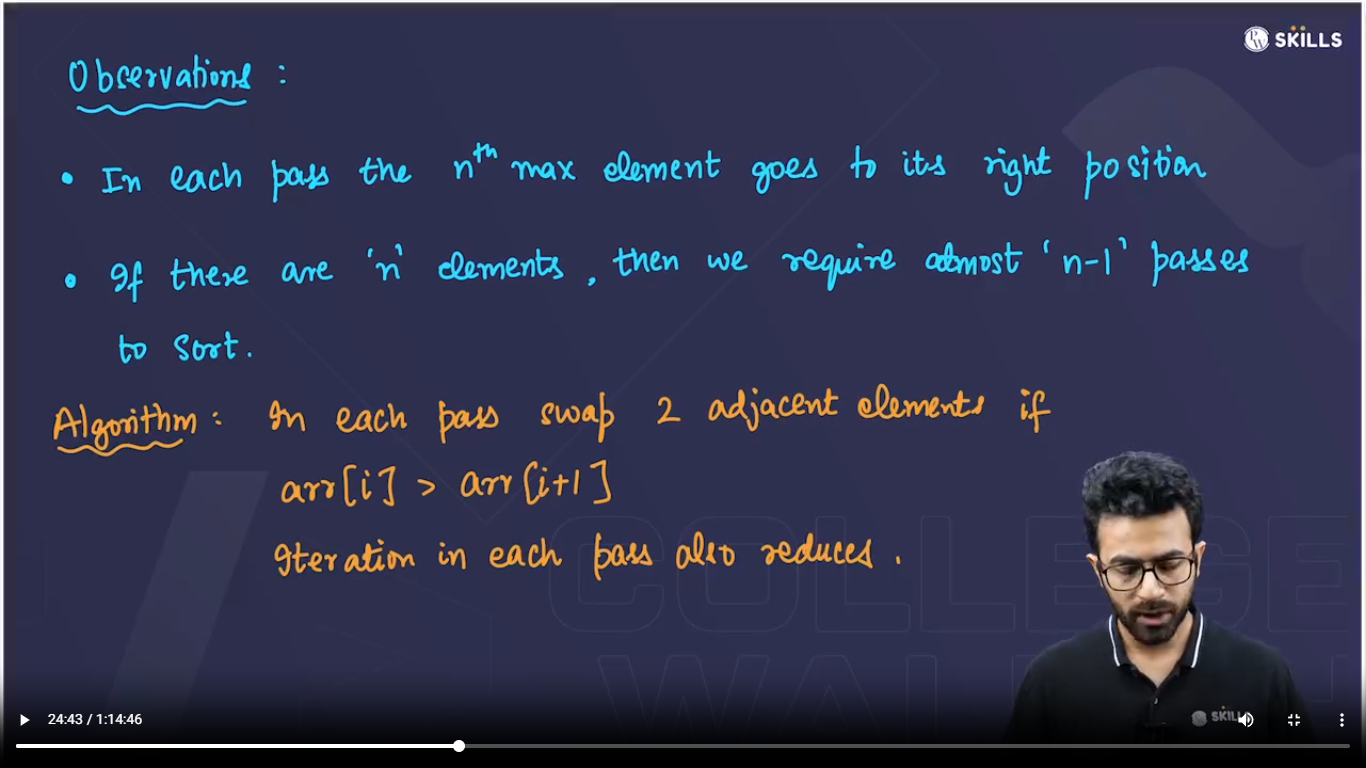 PW SKILLS
Observations :
• In each pass the nth max element goes to its right position
• If there are 'n' elements, then we require atmost 'n-1' passes
to sort.
Algorithm : In each pass swap 2 adjacent elements if
arr[i] > arr[i+1]
Iteration in each pass also reduces.
COLLEGE
WAL
SKILLS
24:43 / 1:14:46